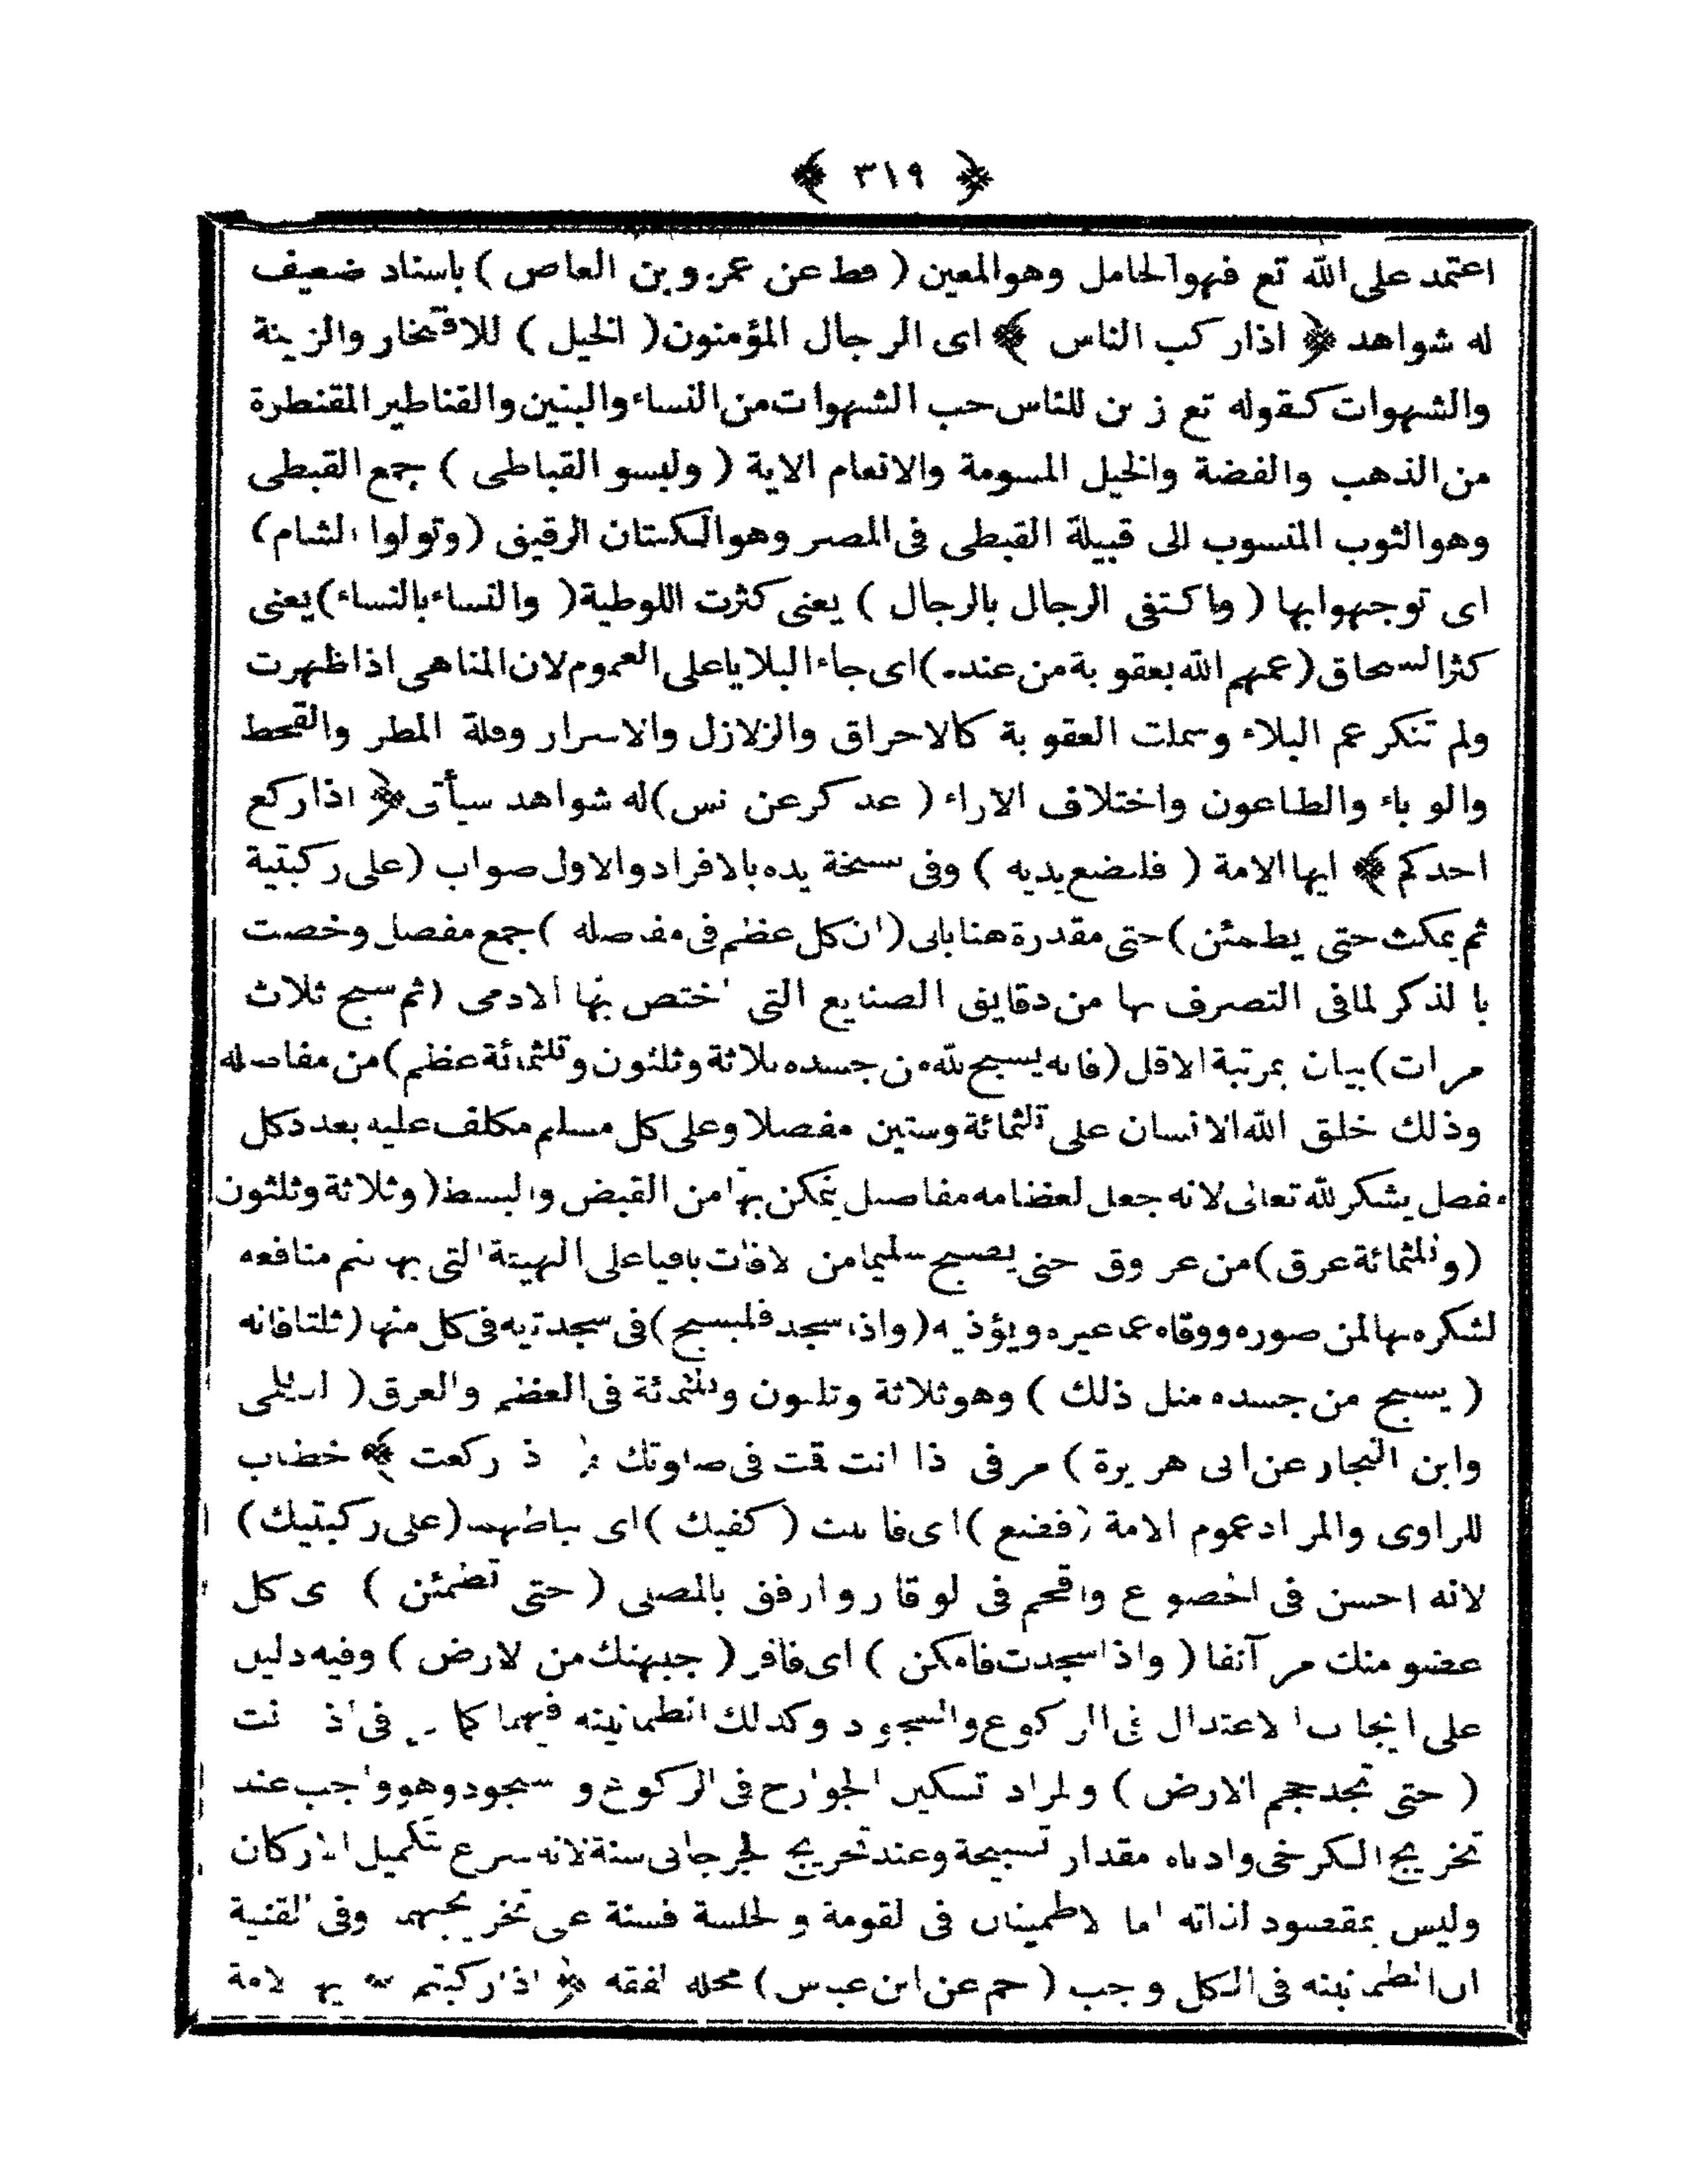 ﴿ ٣١٩ ﴾
اعتمد على الله تع فهو الحامل وهو المعين ( قط عن عمرو بن العاص ) باسناد ضعيف
له شواهد ﴿ اذا ركب الناس ﴾ اى الرجال المؤمنون ( الخيل ) للافتخار والزينة
والشهوات كقوله تع زين للناس حب الشهوات من النساء والبنين والقناطير المقنطرة
من الذهب والفضة والخيل المسومة والانعام الاية ( ولبسو القباطى ) جمع القبطى
وهو الثوب المنسوب الى قبيلة القبطى فى المصر وهو الكتان الرقيق ( وتولوا الشام )
اى توجهوا بها ( واكتفى الرجال بالرجال ) يعنى كثرت اللوطية ( والنساء بالنساء ) يعنى
كثر السحاق ( عمهم الله بعقوبة من عنده ) اى جاء البلايا على العموم لان المناهى اذا ظهرت
ولم تنكر عم البلاء وسملت العقوبة كالاحراق والزلازل والاسرار وقلة المطر والقحط
والوباء والطاعون واختلاف الاراء ( عد كر عن نس ) له شواهد سيأتى ﴿ اذا ركع
احدكم ﴾ ايها الامة ( فليضع يديه ) وفى نسخة يده بالافراد والاول صواب ( على ركبتيه
ثم يمكث حتى يطمئن ) حتى مقدرة هنا بالى ( ان كل عظم فى مفاصله ) جمع مفصل وخصت
بالذكر لما فى التصرف بها من دقايق الصنايع التى اختص بها الادمى ( ثم سبح ثلاث
مرات ) بيان بمرتبة الاقل ( فانه يسبح لله من جسده ثلاثة وثلثون وثلثمائة عظم ) من مفاصله
وذلك خلق الله الانسان على ثلثمائة وستين مفصلا وعلى كل مسلم مكلف عليه بعدد كل
مفصل يشكر لله تعالى لانه جعل لعظامه مفاصل يتمكن بها من القبض والبسط ( وثلاثة وثلثون
( وثلثمائة عرق ) من عروق حتى يصبح سليما من لافات باقيا على الهيئة التى بها تتم منافعه
لشكره بها لمن صوره ووقاه عما غيره ويؤذيه ( واذا سجد فليسبح ) فى سجدتيه فى كل منها ( ثلثا فانه
( يسبح من جسده مثل ذلك ) وهو ثلاثة وثلثون وثلثمائة فى العظم والعرق ( الديلمى
وابن النجار عن ابى هريرة ) مر فى ذا انت قمت فى صلوتك ﴿ ذ ركعت ﴾ خطاب
للراوى والمراد عموم الامة ( فضع ) اى فاثبت ( كفيك ) اى بباطنهما ( على ركبتيك )
لانه احسن فى الخضوع وافخم فى لوقار وارفق بالمصلى ( حتى تطمئن ) ى كل
عضو منك مر آنفا ( واذا سجدت فامكن ) اى فاقر ( جبهتك من لارض ) وفيه دليل
على ايجاب الاعتدال فى الركوع والسجود وكذلك الطمانينه فيهما كما فى اذ نت
( حتى تجد حجم الارض ) ولمراد تسكين الجوارح فى الركوع و سجود وهو واجب عند
تخريج الكرخى وادناه مقدار تسبيحة وعند تخريج لجرجانى سنة لانه سرع تكميل الاركان
وليس بمقصود لذاته اما لاطمينان فى لقومة ولجلسة فسنة على تخريجهما وفى القنية
ان الطمانينه فى الكل وجب ( حم عن ابن عبس ) محله لفقه ﴿ اذا ركبتم ﴾ يها لامة